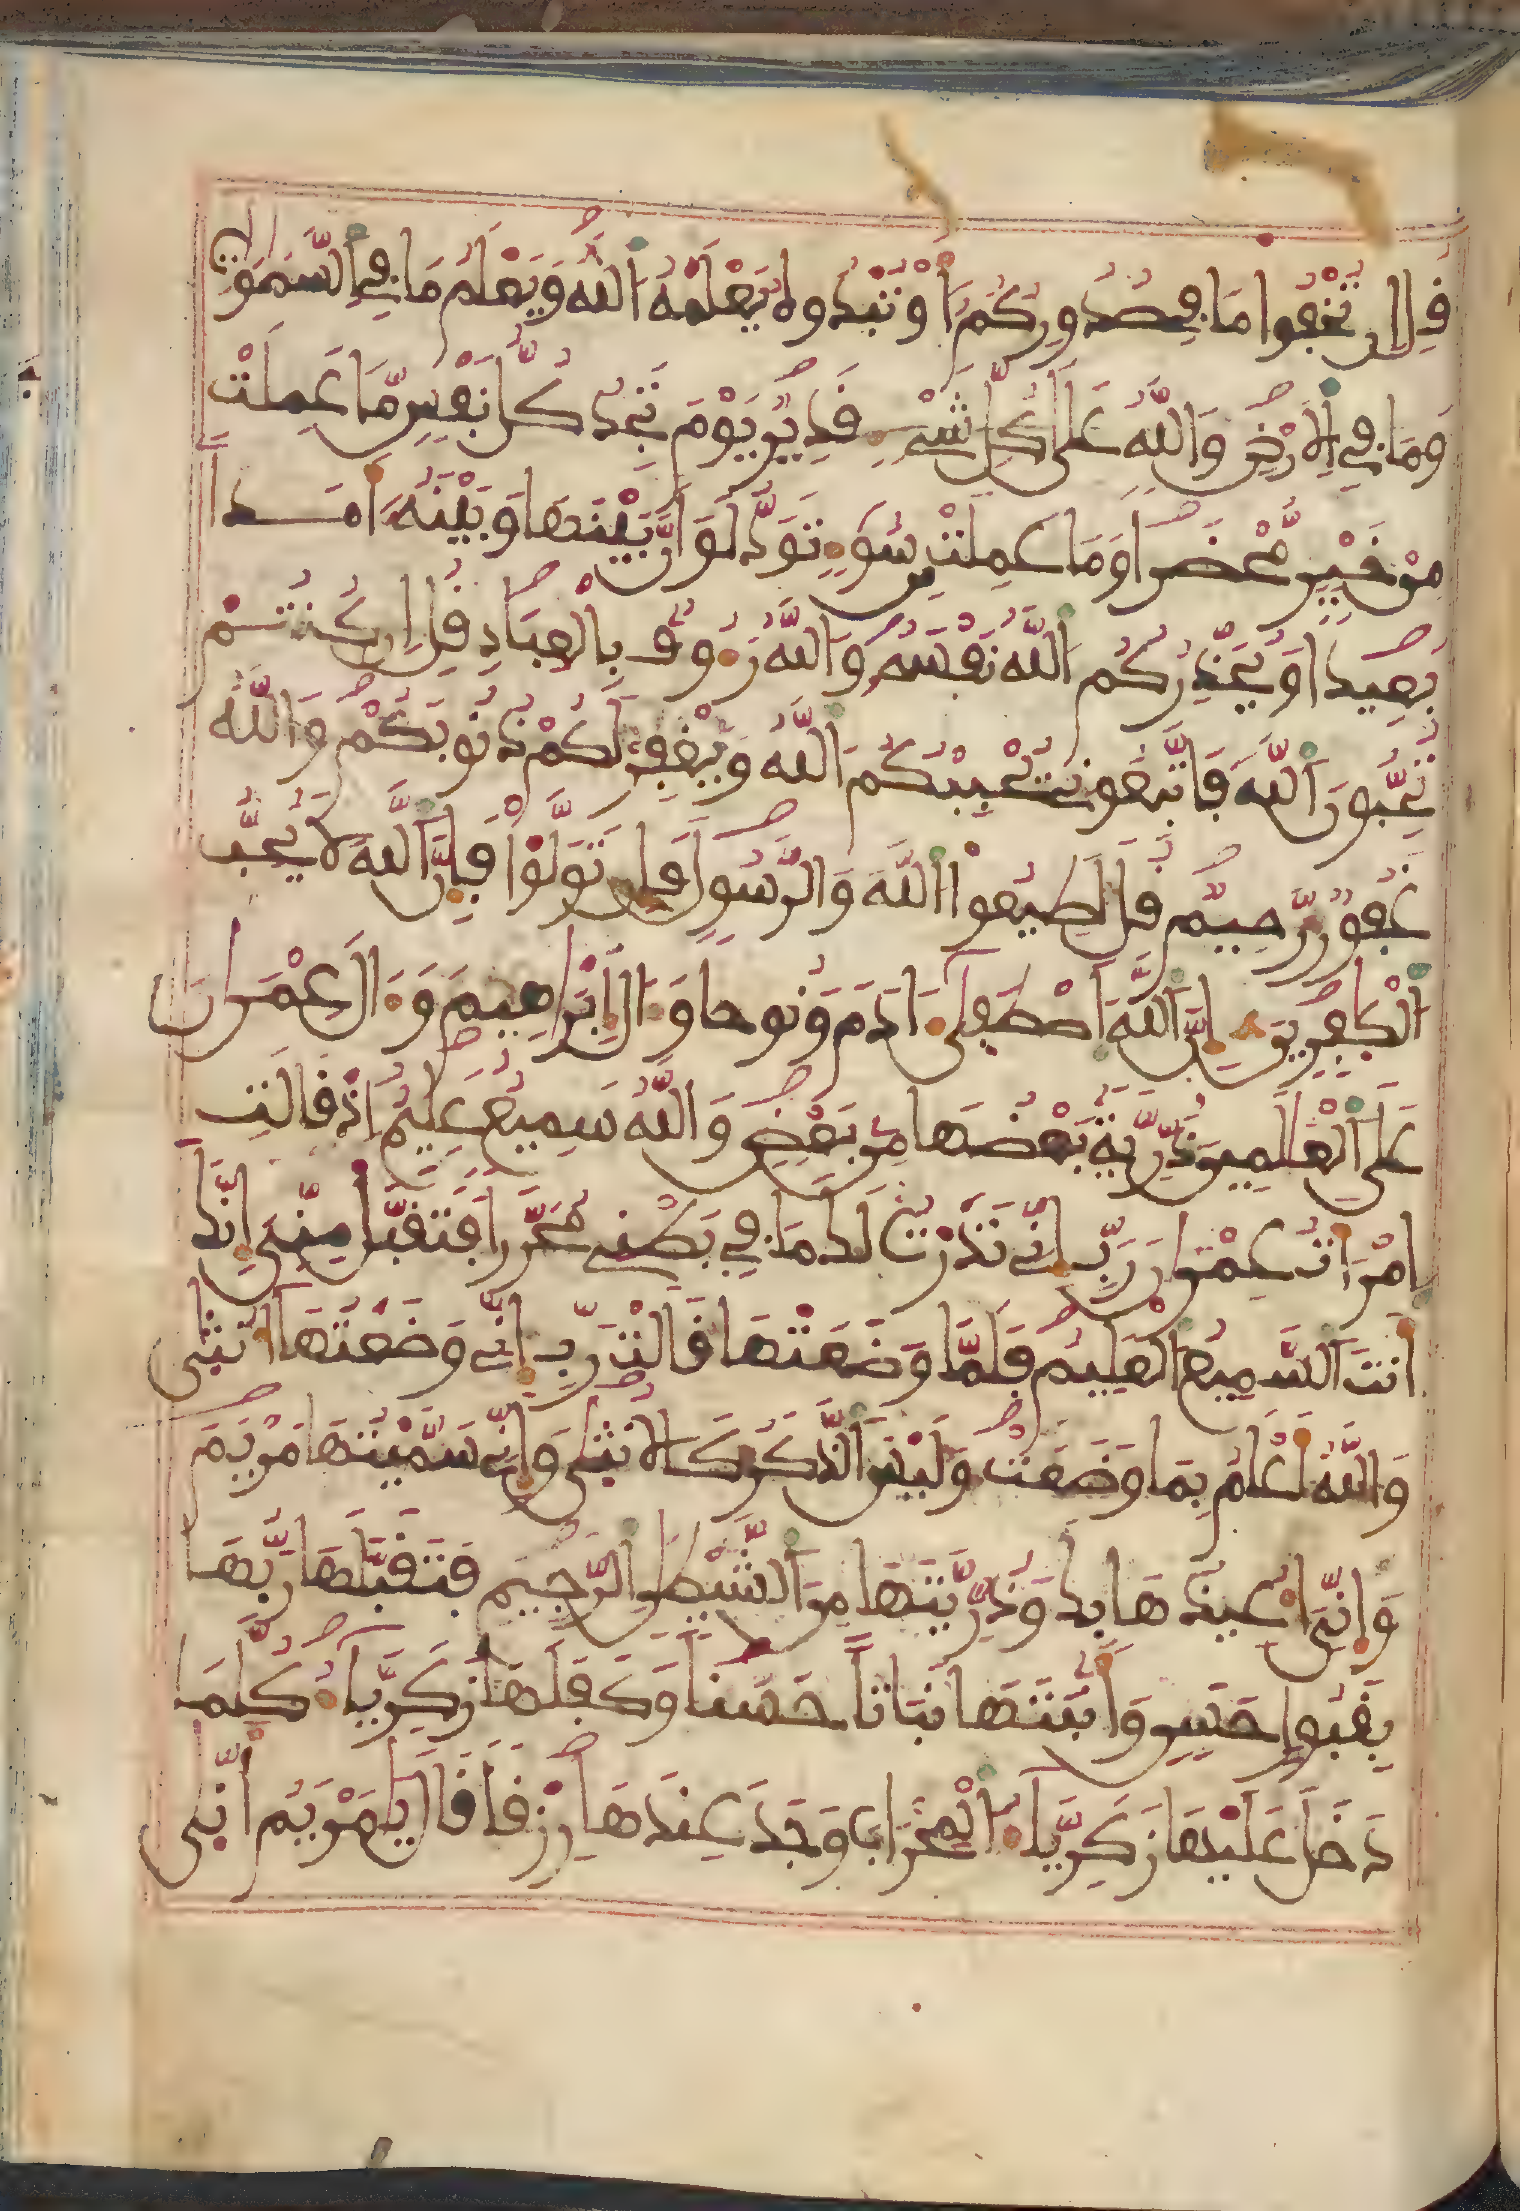 قُلِ ان تُخْفُوا مَا فِي صُدُورِكُمُ أَوْ تُبْدُوهُ يَعْلَمْهُ اُللَّهُ وَيَعْلَمُ مَا فِي اِلسَّمَٰوَٰتِ
وَمَا فِي اِلَارْضِ وَاللَّهُ عَلَىٰ كُلِّ شَيْءٍ قَدِيرٌ يَوْمَ تَجِدُ كُلُّ نَفْسٍ مَّا عَمِلَتْ
مِنْ خَيْرٍ مُّحْضَراً وَمَا عَمِلَتْ مِن سُوٓءٍ تَوَدُّ لَوَ اَنَّ بَيْنَهَا وَبَيْنَهُ أَمَداً
بَعِيداً وَيُحَذِّرُكُمُ اُللَّهُ نَفْسَهُ وَاللَّهُ رَءُوفٌ بِالْعِبَادِ قُلِ ان كُنتُمْ
تُحِبُّونَ اَللَّهَ فَاتَّبِعُونِي يُحْبِبْكُمُ اُللَّهُ وَيَغْفِرْ لَكُمْ ذُنُوبَكُمْ وَاللَّهُ
غَفُورٌ رَّحِيمٌ قُلَ اَطِيعُوا اُللَّهَ وَالرَّسُولَ فَإِن تَوَلَّوْا فَإِنَّ اَللَّهَ لَا يُحِبُّ
اُلْكَٰفِرِينَ إِنَّ اَللَّهَ اَصْطَفَىٰ ءَادَمَ وَنُوحاً وَءَالَ إِبْرَاهِيمَ وَءَالَ عِمْرَانَ
عَلَى اَلْعَٰلَمِينَ ذُرِّيَّةً بَعْضُهَا مِن بَعْضٍ وَاللَّهُ سَمِيعٌ عَلِيمٌ اِذْ قَالَتِ
اِمْرَأَتُ عِمْرَانَ رَبِّ إِنِّي نَذَرْتُ لَكَ مَا فِي بَطْنِي مُحَرَّراً فَتَقَبَّلْ مِنِّيَ إِنَّكَ
أَنتَ اَلسَّمِيعُ الْعَلِيمُ فَلَمَّا وَضَعَتْهَا قَالَتْ رَبِّ إِنِّي وَضَعْتُهَا أُنثَىٰ
وَاللَّهُ أَعْلَمُ بِمَا وَضَعَتْ وَلَيْسَ اَلذَّكَرُ كَالُانثَىٰ وَإِنِّي سَمَّيْتُهَا مَرْيَمَ
وَإِنِّيَ أُعِيذُهَا بِكَ وَذُرِّيَّتَهَا مِنَ اَلشَّيْطَٰنِ اِلرَّجِيمِ فَتَقَبَّلَهَا رَبُّهَا
بِقَبُولٍ حَسَنٍ وَأَنبَتَهَا نَبَاتاً حَسَناً وَكَفَلَهَا زَكَرِيَّاءُ كُلَّمَا
دَخَلَ عَلَيْهَا زَكَرِيَّاءُ اُلْمِحْرَابَ وَجَدَ عِندَهَا رِزْقاً قَالَ يَٰمَرْيَمُ أَنَّىٰ